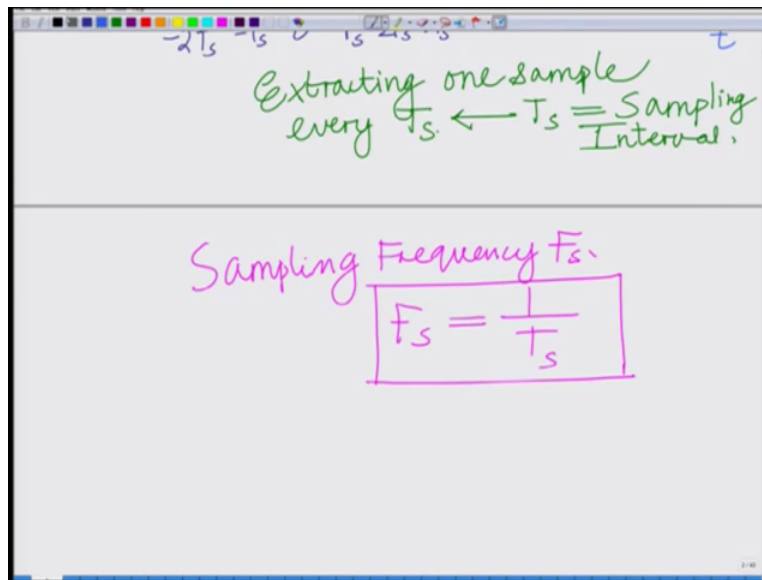 -2Ts -Ts 0 Ts 2Ts
t
Extracting one sample
every Ts. ← Ts = Sampling
Interval.
Sampling Frequency Fs.
Fs = 1/Ts